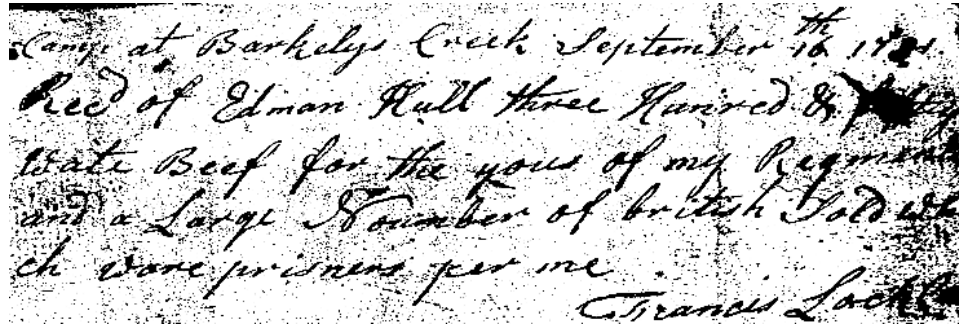 Camp at Barkelys Creek September 16th
Recd of Edman Hull three Hunred &
Wate Beef for the yous of my Regment
and a Large Noumber of british Sold Whi
ch ware prisners per me
Francis Lock